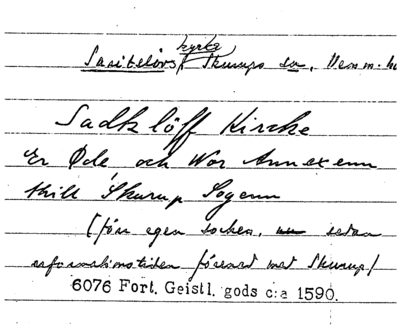 kyrka
Saritslövs, Skurups sn, Vemm. h
Sadtzlöff Kirche
Er Øde och Wor Annexenn
thill Skurup Sogenn
(förr egen socken, sedan
reformationstiden förenad med Skurup)
6076 Fort. Geistl. gods c:a 1590.